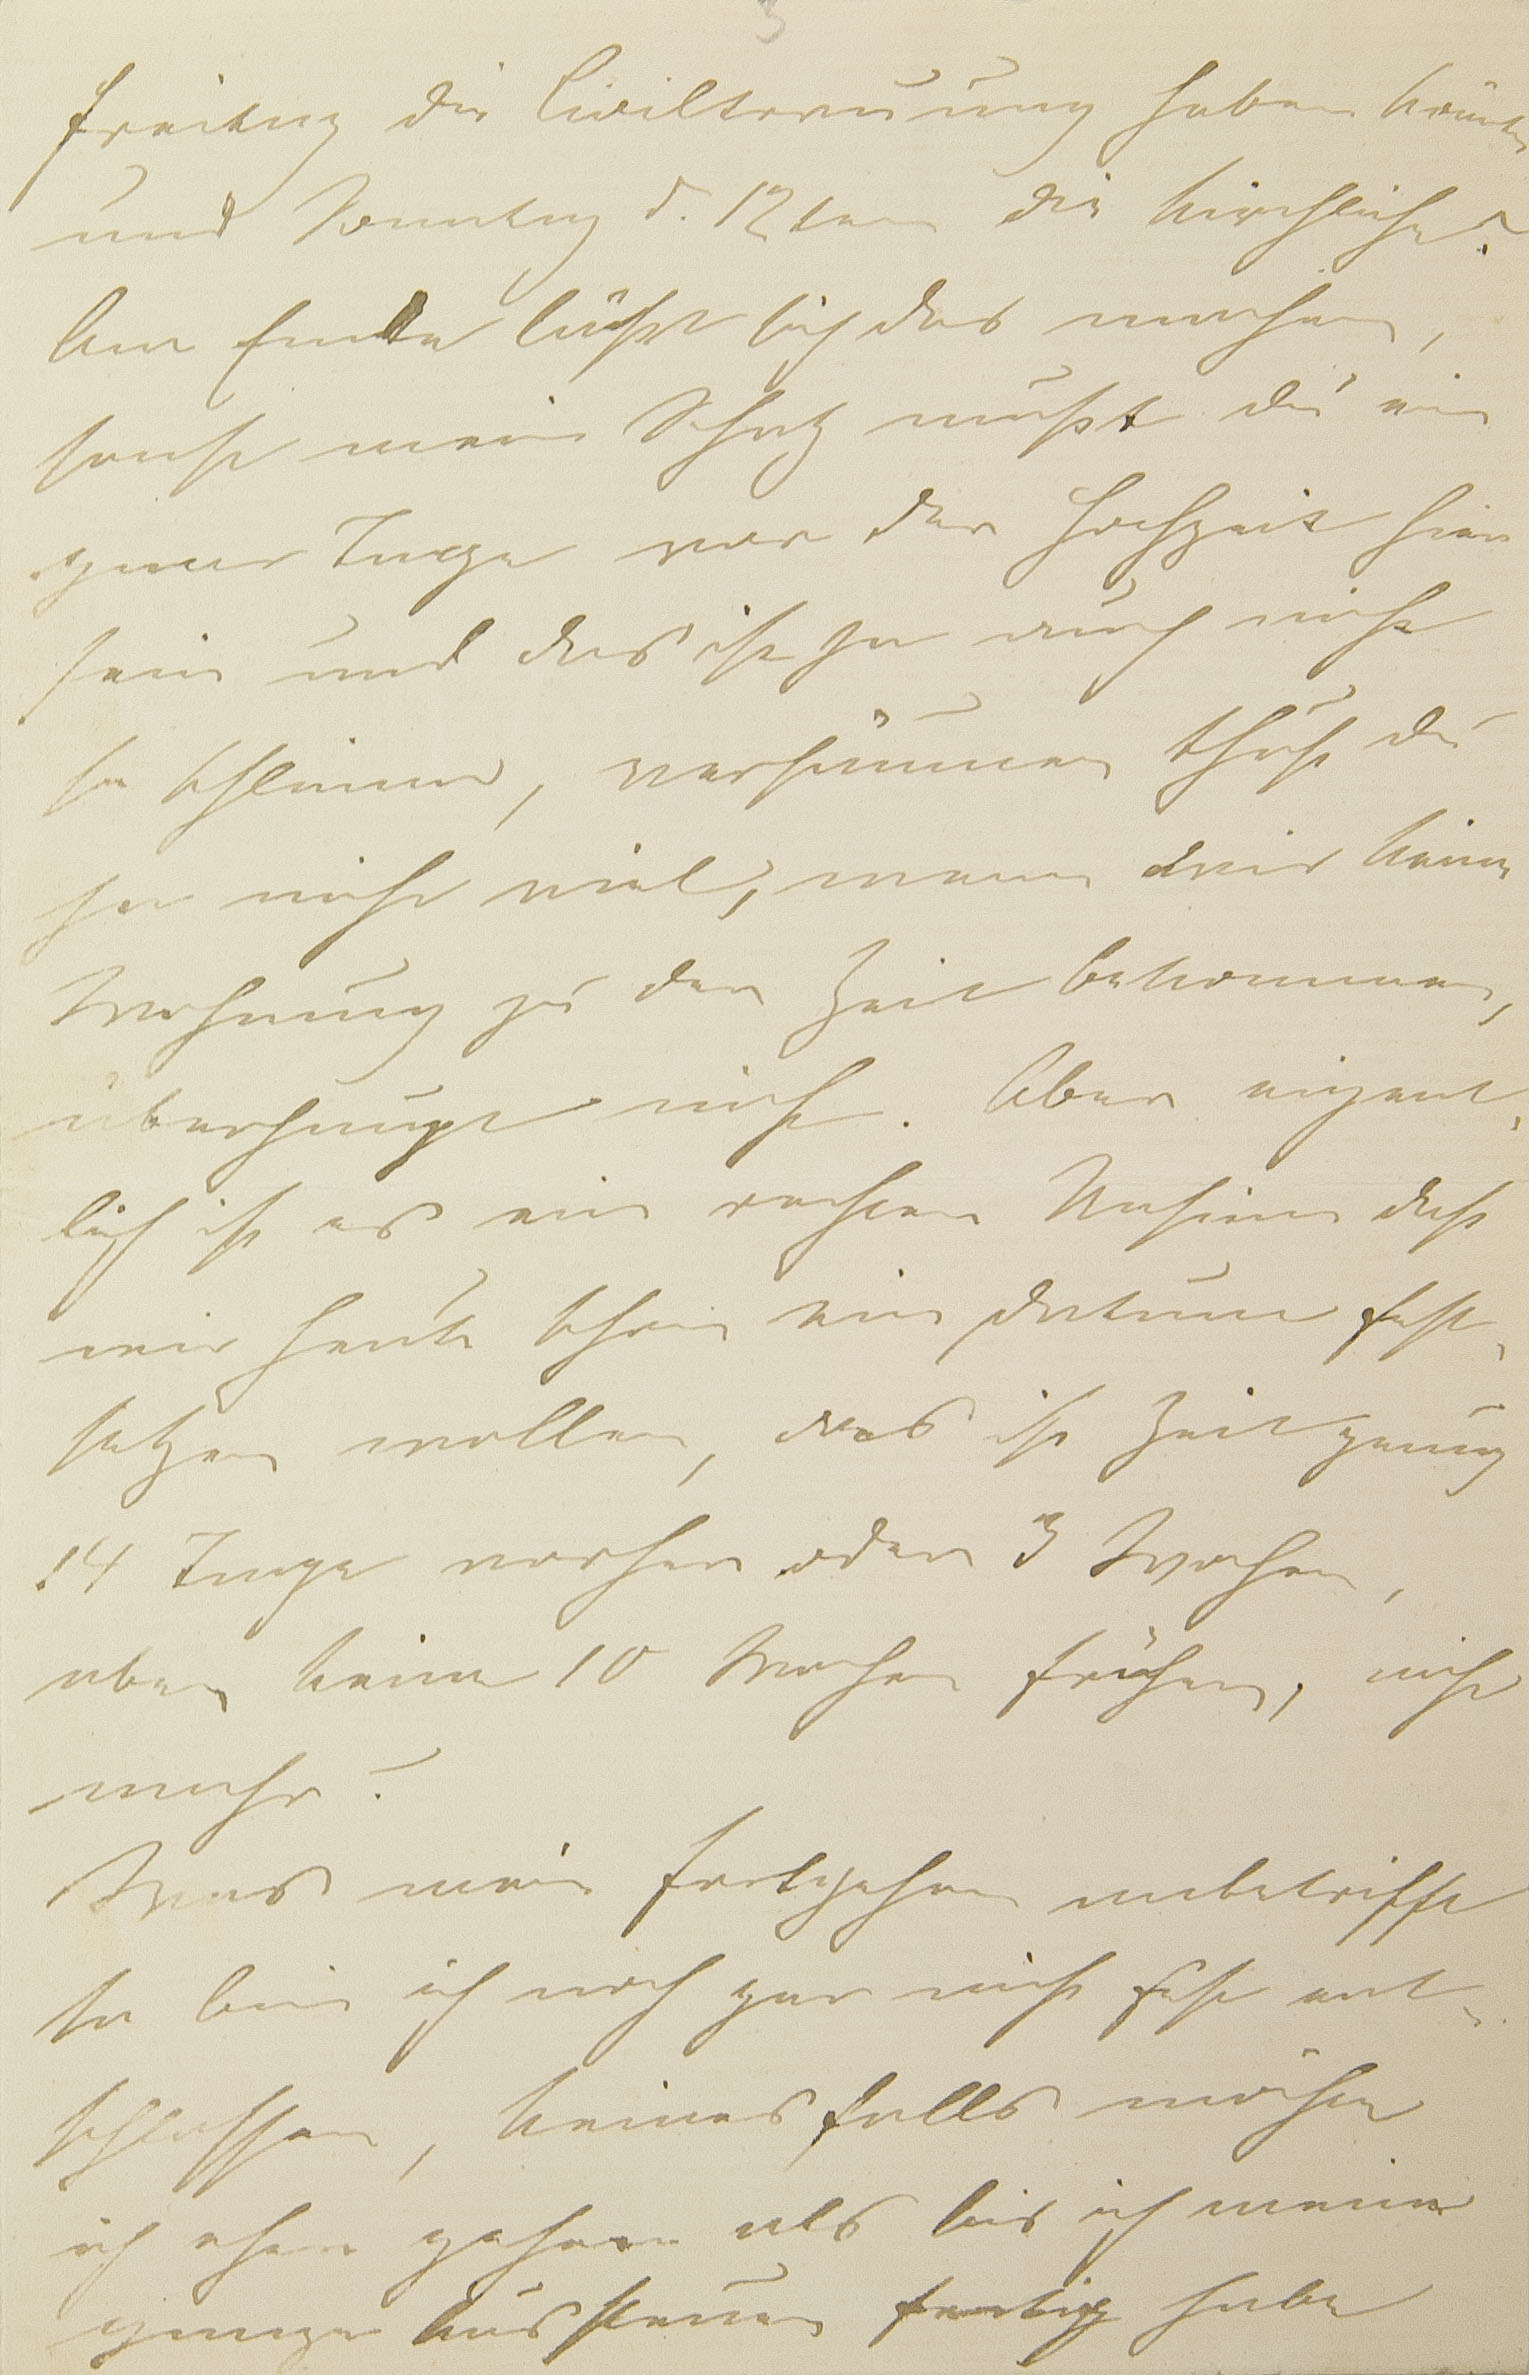 3
Freitag die Civiltrauung haben könnten
und Sonntag d. 12ten die kirchliche?
Am Ende läßt sich das machen,
sonst mein Schatz mußt du ein
paar Tage vor der Hochzeit hier
sein und das ist ja auch nicht
so schlimm, versäumen thust du
ja nicht viel, wenn wir keine
Wohnung zu der Zeit bekommen,
überhaupt nicht. Aber eigent-
lich ist es ein rechter Unsinn daß
wir heute schon ein Datum fest-
setzen wollen, das ist Zeit genug
14 Tage vorher oder 3 Wochen,
aber keine 10 Wochen früher, nicht
wahr?
Was mein Fortgehen anbetrifft
so bin ich noch gar nicht fest ent-
schlossen, keinesfalls möchte
ich eher gehen als bis ich meine
ganze Aussteuer fertig habe